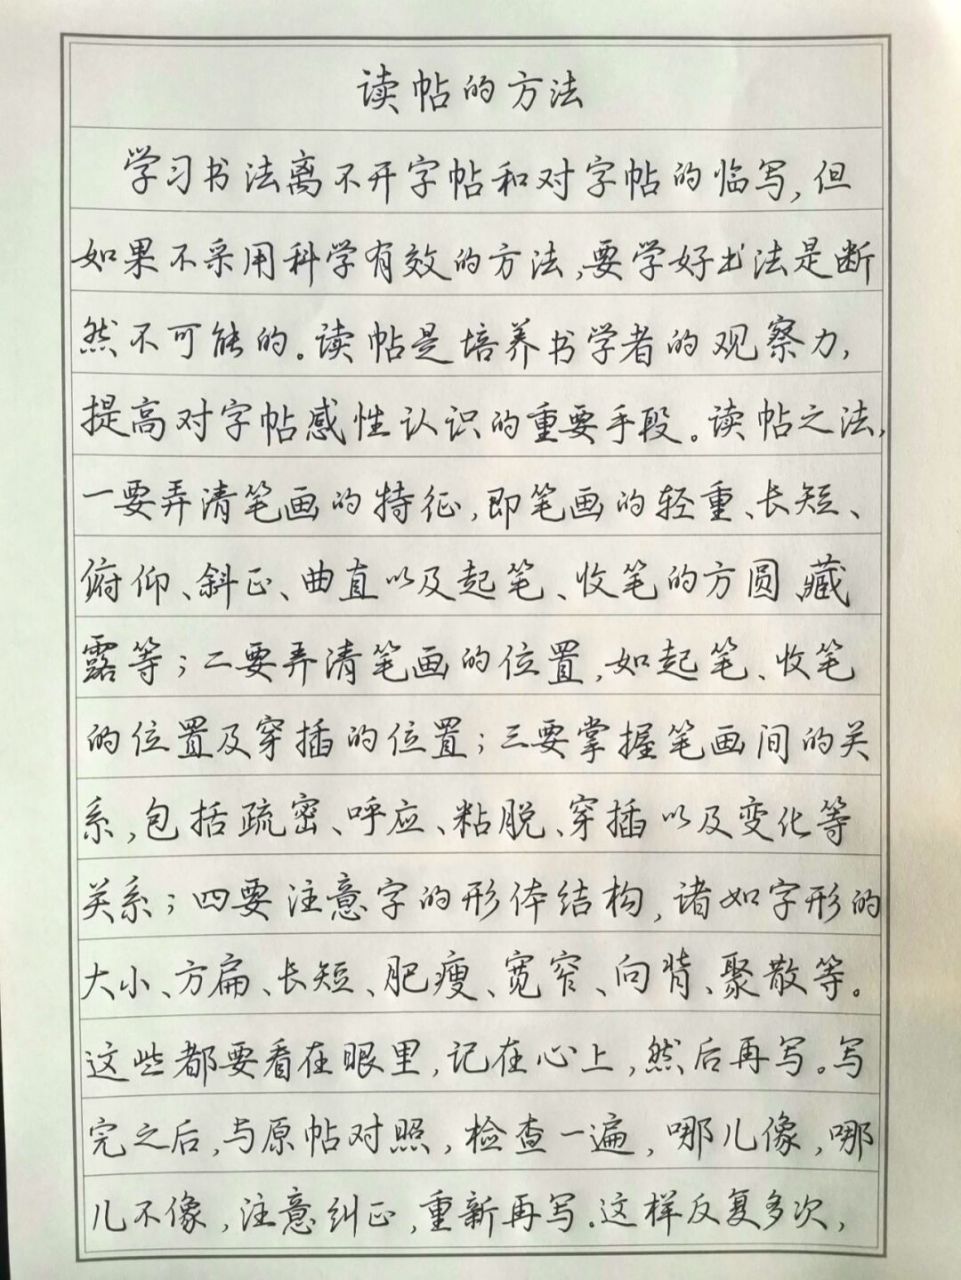 读帖的方法
学习书法离不开字帖和对字帖的临写,但
如果不采用科学有效的方法,要学好书法是断
然不可能的。读帖是培养书学者的观察力,
提高对字帖感性认识的重要手段。读帖之法,
一要弄清笔画的特征,即笔画的轻重、长短、
俯仰、斜正、曲直以及起笔、收笔的方圆、藏
露等;二要弄清笔画的位置,如起笔、收笔
的位置及穿插的位置;三要掌握笔画间的关
系,包括疏密、呼应、粘脱、穿插以及变化等
关系;四要注意字的形体结构,诸如字形的
大小、方扁、长短、肥瘦、宽窄、向背、聚散等。
这些都要看在眼里,记在心上,然后再写。写
完之后,与原帖对照,检查一遍,哪儿像,哪
儿不像,注意纠正,重新再写。这样反复多次,